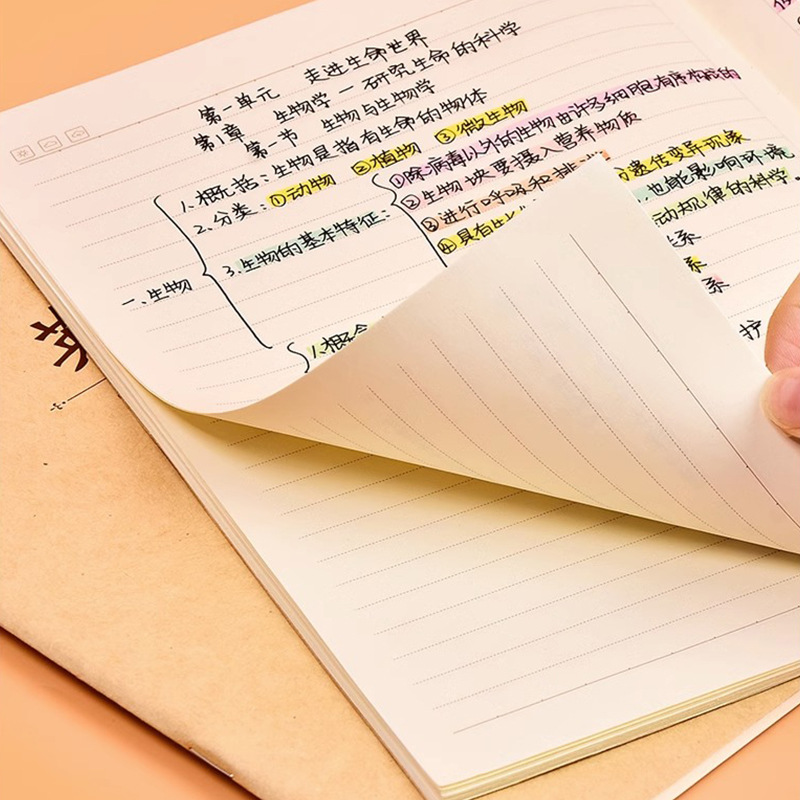 第一单元 走进生命世界
第1章 生物学一研究生命的科学
第一节 生物与生物学
1.概括:生物是指有生命的物体
2.分类:①动物 ②植物 ③微生物
3.生物的基本特征:
①除病毒以外的生物由许多细胞有序构成的
②生物块要摄入营养物质
③进行呼吸和排泄
④具有生
遗传变异现象
也能影响环境
动规律的科学.
系
系
系
护
一、生物
1.概念